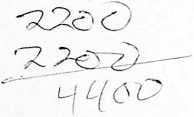 2200
2200
4400